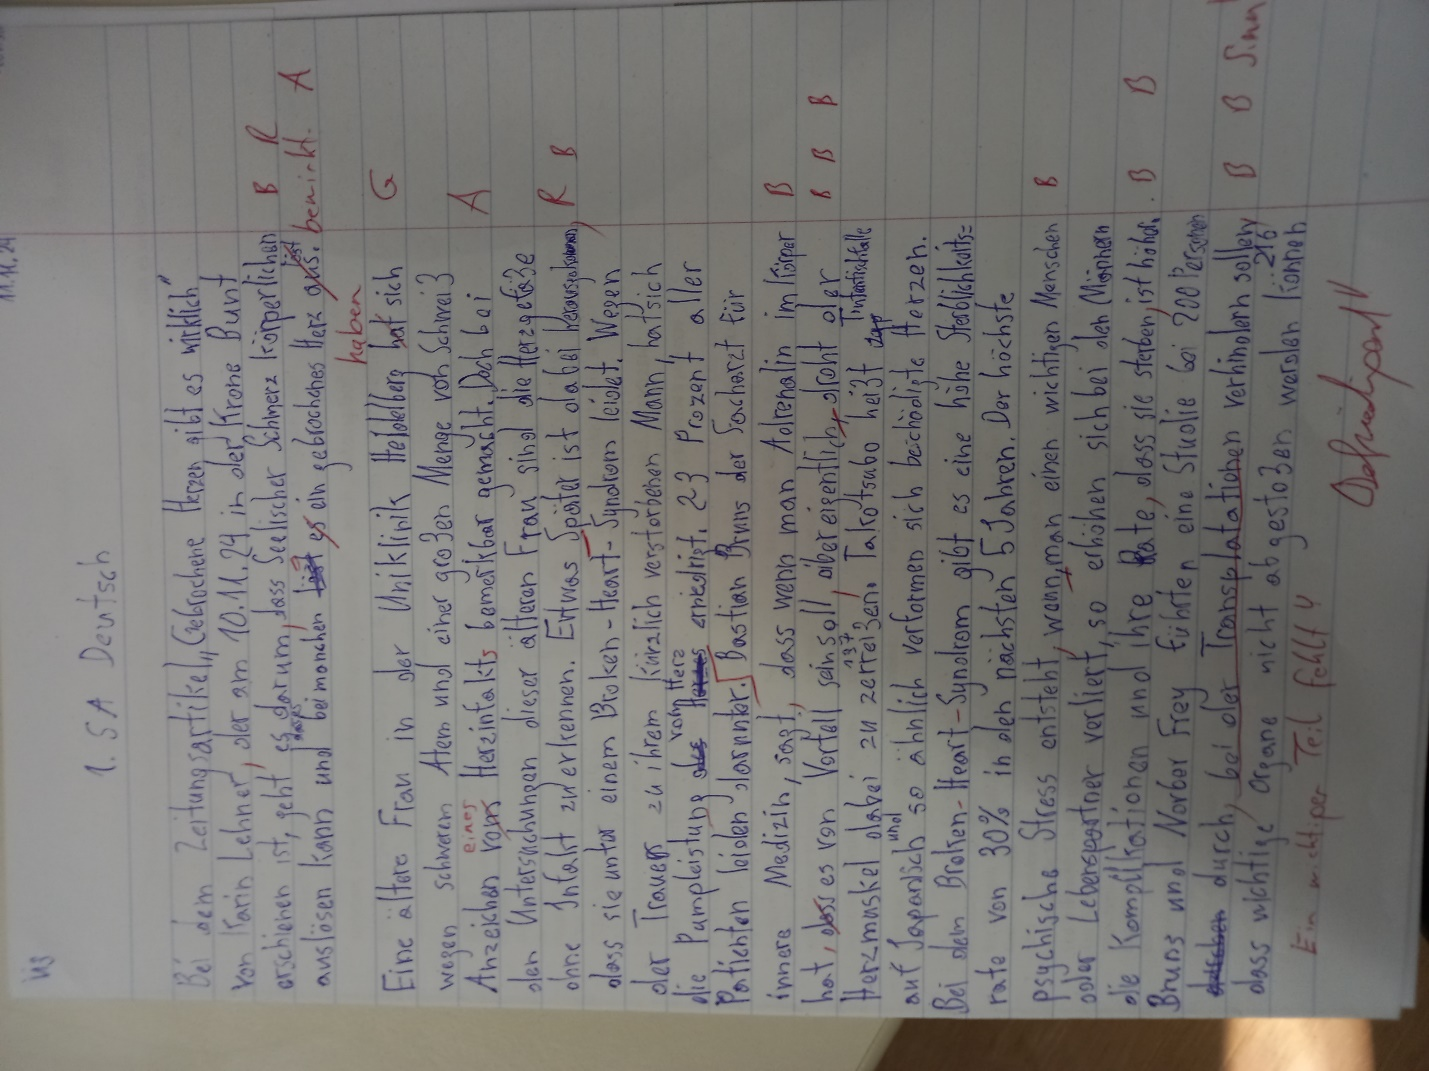 11.11.24
1. SA Deutsch
Bei dem Zeitungsartikel „Gebrochene Herzen gibt es wirklich"
von Karin Lehner, der am 10.11.24 in der Krone Bunt B R
erschienen ist, geht es darum, dass Seelischer Schmerz körperlichen
auslösen kann und bei manchen es ein gebrochenes Herz auslöst. bewirkt. A
haben
Eine ältere Frau in der Uniklinik Heidelberg hat sich G
wegen schweren Atem und einer großen Menge von Schweiß
Anzeichen vom eines Herzinfakts bemerkbar gemacht. Doch bei A
den Untersuchungen dieser älteren Frau sind die Herzgefäße
ohne Infakt zu erkennen. Etwas Später ist dabei herausgekommen, R B
dass sie unter einem Broken-Heart-Syndrom leidet. Wegen
der Trauer zu ihrem kürzlich verstorbenen Mann, hat sich
die Pumpleistung vom Herz erniedrigt. 2-3 Prozent aller
Patienten leiden darunter. Bastian Bruns der Facharzt für
innere Medizin, sagt, dass wenn man Adrenalin im Körper B
hat, dass es von Vorteil sein soll, aber eigentlich droht der B B B
Herzmuskel dabei zu zerreißen. Takotsubo heißt Tintenfischfalle
137
auf Japanisch und so ähnlich verformen sich beschädigte Herzen.
Bei dem Broken-Heart-Syndrom gibt es eine hohe Sterblichkeits=
rate von 30% in den nächsten 5 Jahren. Der höchste
psychische Stress entsteht, wenn, man einen wichtigen Menschen B
oder Lebenspartner verliert, so erhöhen sich bei den Männern
die Komplikationen und ihre Rate, dass sie sterben, ist höher. B B
Bruns und Norber Frey führten eine Studie bei 200 Personen
durch, bei der Transplatationen verhindern sollen, B B
dass wichtige Organe nicht abgestoßen werden können
216
Ein wichtiger Teil fehlt!